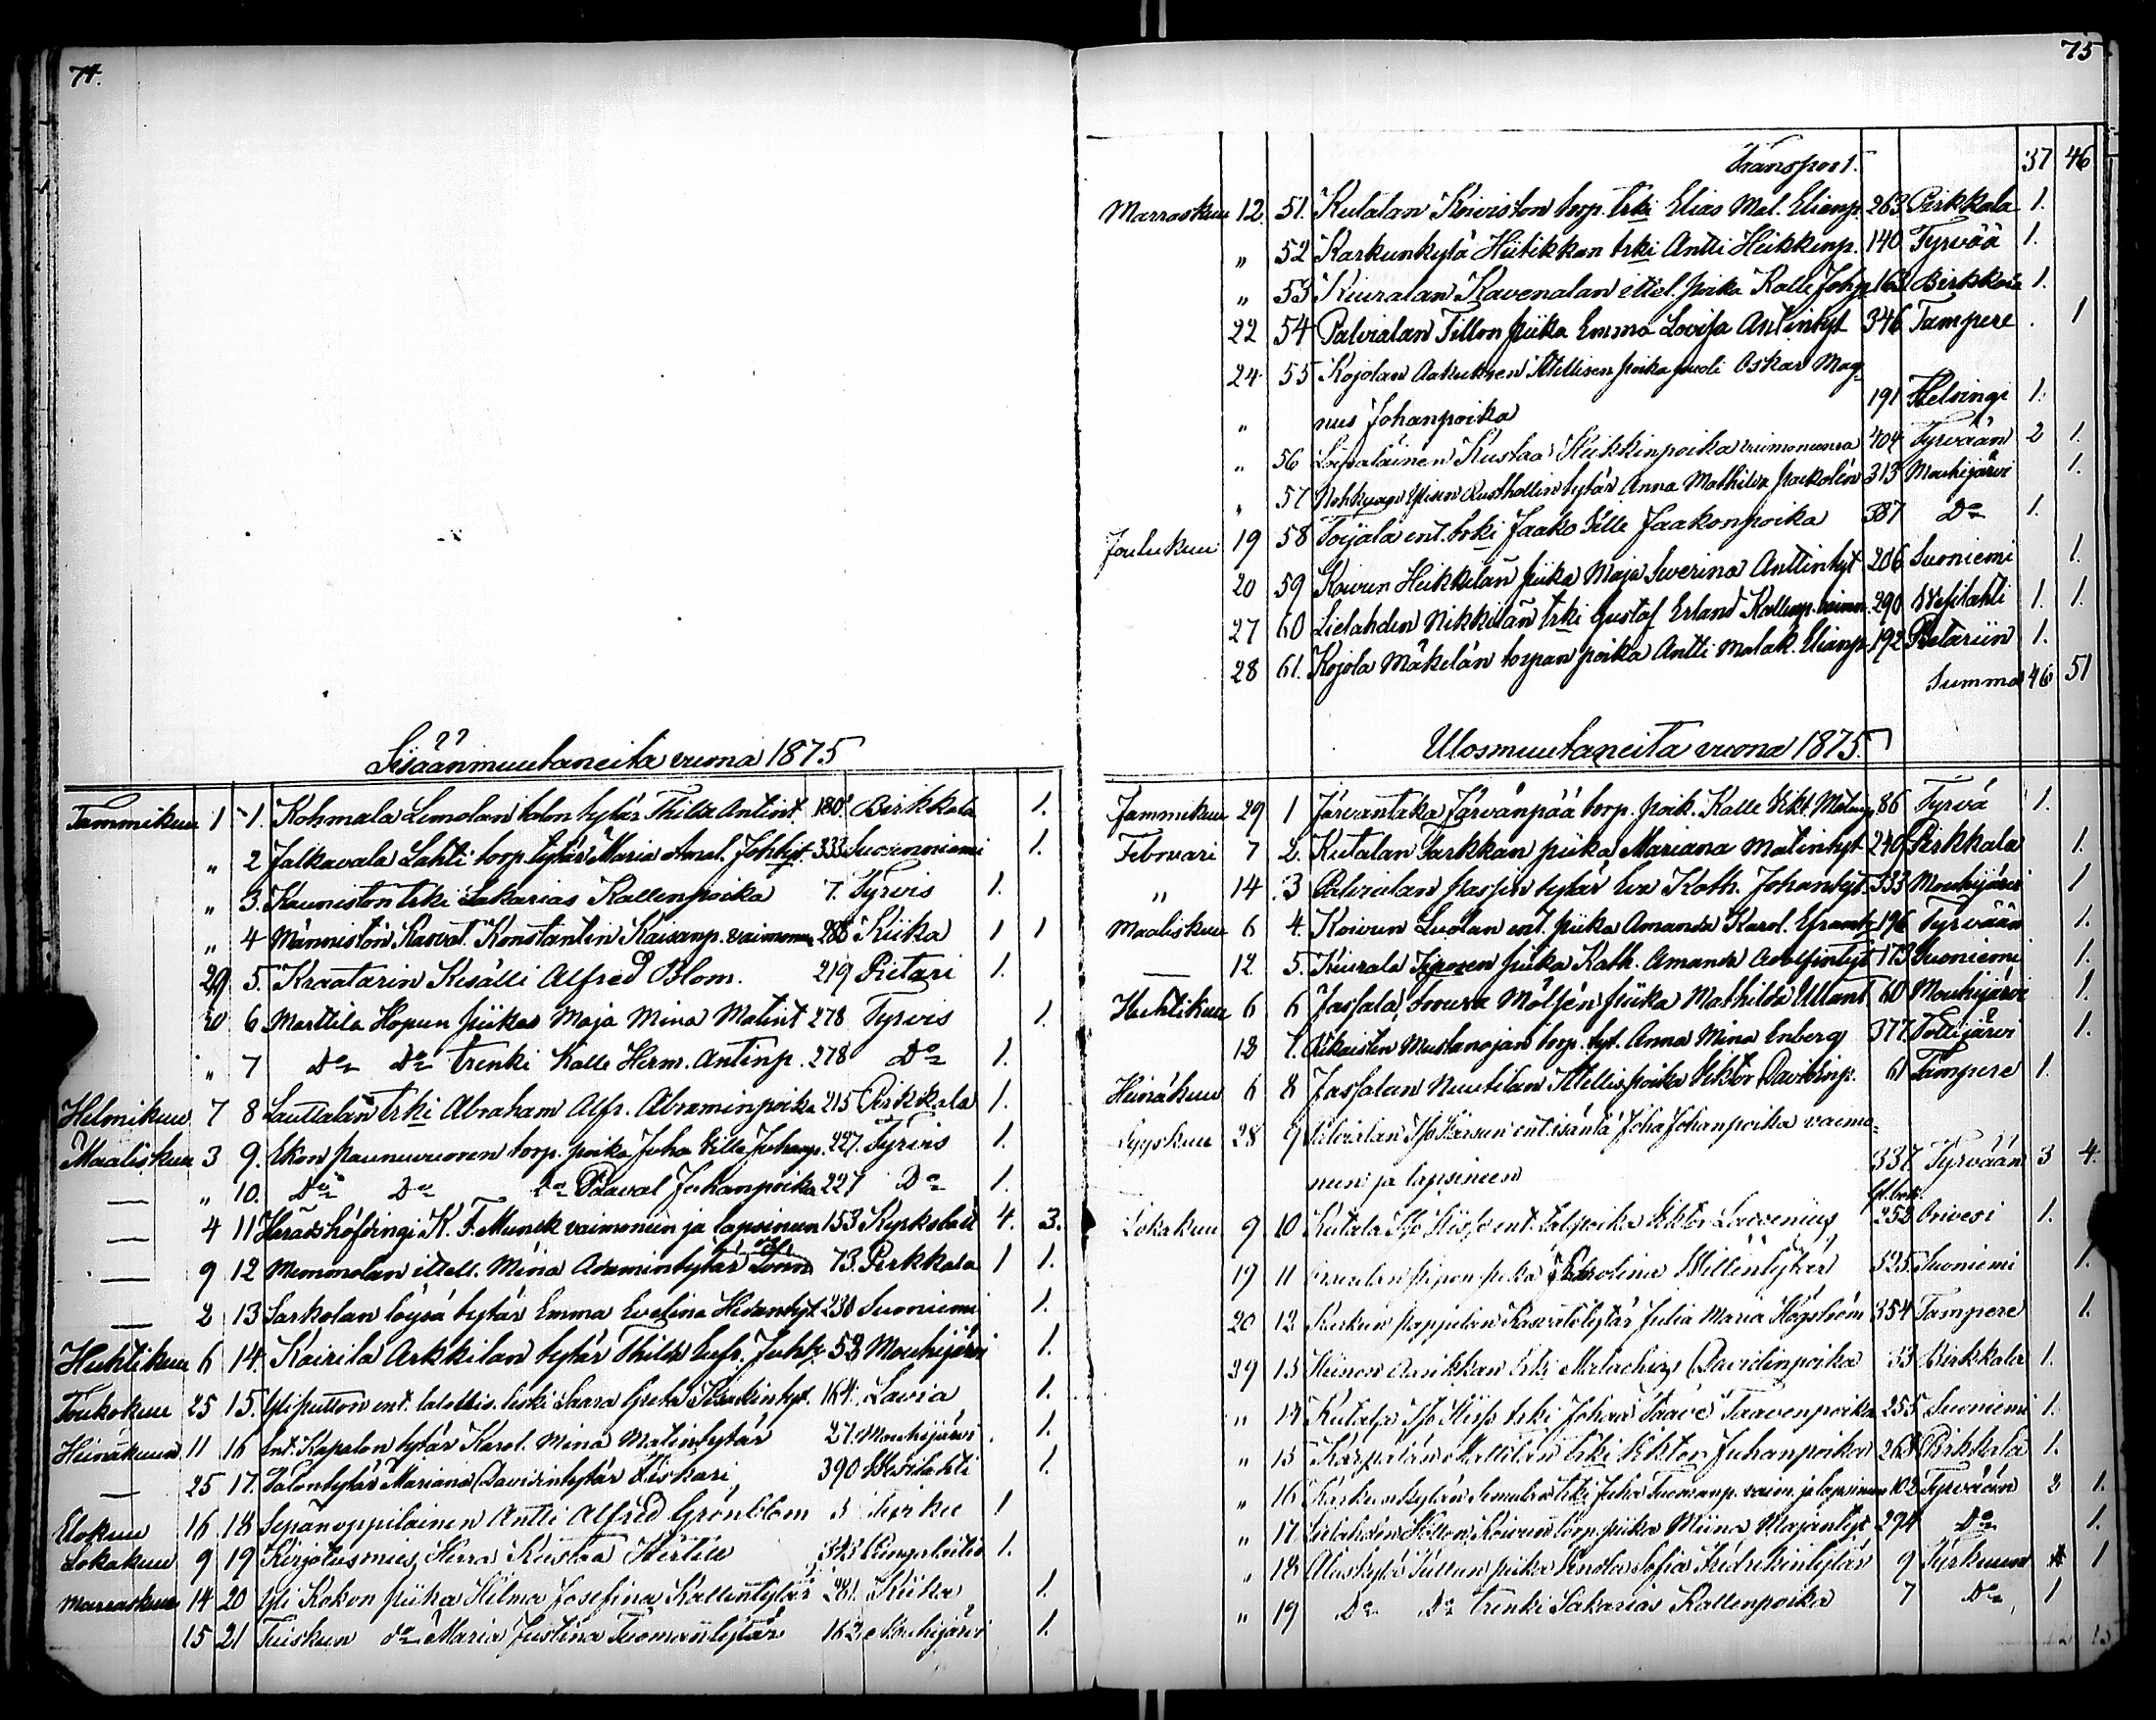 74.
Sisäänmuutaneita vuona 1875
Tammikuu 1 1. Kohmala Limolan talon tytär Thilda Antint 180. Birkkala 1.
„ 2 Jalkavala Lahti torp. tytär Maria Amal. Johtyt 333 Suoniemi 1.
„ 3. Kauniston trki Sakarias Kallenpoika 7. Tyrvis 1.
„ 4 Männistön Konstantin Kaisanp. vaimonen 288 Kiika 1 1
29 5. Kraatarin Kisälli Alfred Blom. 219 Pietari 1.
30 6 Marttila Hopun piika Maja Mina Matint 278 Tyrvis 1.
„ 7 Do Do trenki Kalle Herm. Antinp. 278 Do 1.
Helmikuu 7 8 Lauttalan trki Abraham Alfr. Abraminpoika 215 Pirkkala 1.
Maaliskuu 3 9. Ekon Paunuvuoren torp. poika Juha Ville Juhanp. 227. Tyrvis 1.
— „ 10. Do Do Do Paaval Juhanpoika 227 Do 1.
— 4 11 Häradshöfdingi K. F. Munck vaimoneen ja lapsineen 153 4. 3.
— 9 12 Mommolan ittell. Mina Adamintytär 73. Pirkkala 1 1.
— 2 13 Sarkolan löysä tytär Emma Evelina 230 Suoniemi 1.
Huhtikuu 6 14. Kairila Arkkilan tytär Thilda Eufr. Juht. 53 Mouhijärvi 1.
Toukokuu 25 15. Yliputton ent. leski Saara Greta 164. Lavia 1.
Heinäkuun 11 16 Ent. Kapalon tytär Karol. Mina Matintytär 27. Mouhijärvi 1.
— 25 17. Talontytär Mariana Davidintytär Kiskari 390 Wesilahti 1.
Elokuu 16 18 Sepänoppilainen Antti Alfred Grönblom 5 Turku 1
Lokakuu 9 19 Kirjotusmies Herra Kustaa Hertill 343 Kingalaitio 1.
Marraskuu 14 20 Yli Kokon piika Hilma Josefina Kallentytär 281. Kiika 1.
15 21 Tuiskun do Maria Justina Tuomantytär 162 Mouhijärvi 1.
75
Transport. 37 46
Marraskuu 12. 51. Kutalan Koiviston torp. trki Elias Mal. Elianp. 263 Pirkkala 1.
„ 52 Karkunkylä Hiitikkan trki Antti Heikkinp. 140 Tyrvää 1.
„ 53 Kiuralan Kavenalan ittel. poika Kalle Johp. 162 Birkkala 1.
22 54 Palvialan Tillon piika Emma Lovisa Antintyt 346 Tampere . 1
24 55 Kojolan Aakuksen Ittellisen poika puoli Oskar Mag-
„ nus Johanpoika 191 Helsingi 1.
„ 56 Loisalainen Kustaa Heikkinpoika vaimonensa 404 Tyrvään 2 1.
„ 57 Nohkuan Ylisen Rusthollin tytär Anna Mathilda 313 Mouhijärvi 1.
Joulukuu 19 58 Toijala ent. trki Jaako Ville Jaakonpoika 387 Do 1.
20 59 Koivun Heikkilän piika Maja Sverina Anttintyt 206 Suoniemi 1.
27 60 Lielahden Nikkilän trki Gustaf Erland Kallenp. vaimo 290 Wesilahti 1. 1.
28 61. Kojola Mäkelän torpan poika Antti Malak. Elianp. 192 Pietariin 1.
Summa 46 51
Ulosmuutaneita vuona 1875
Tammikuu 29 1 Järventaka Järvänpää torp. poik. Kalle Vikt. Matinp. 86 Tyrvä 1.
Februari 7 2. Kutalan Tarkkan piika Mariana Matintyt 240 Pirkkala 1.
„ 14 3 Palvialan tytär Eva Kath. Johantyt. 333 Mouhijärvi 1
Maaliskuu 6 4. Koivun Luolan ent. piika Amanda Karol. 196 Tyrvään 1.
— 12 5. Kiurala piika Kath. Amanda Adolfintyt 173 Suoniemi 1.
Huhtikuu 6 6 Jassala piika Mathilda 60 Mouhijärvi 1.
18 7. Aikaisten Mustanojan torp. tyt. Anna Mina Enberg 377. Tottijärvi 1.
Heinäkuu 6 8 Jassalan Nuutilan Ittellis poika Viktor Davidinp. 61 Tampere 1.
Syyskuu 28 9 Palvialan ent. isäntä Joha Johanpoika vaimo-
nen ja lapsineen 337. Tyrvään 3 4.
Lokakuu 9 10 Kutala ent. talpoika Viktor Laurenius 252 Orivesi 1.
19 11 Karolina Willentytär 325. Suoniemi 1.
20 12 Karkun Pappilan Julia Maria Högström 354 Tampere 1.
29 13 Heinon trki Malachias Davidinpoika 33 Birkkala 1.
„ 14 Kutala trki Johan Taave Taavenpoika 255 Suoniemi 1.
„ 15 Mattilan trki Viktor Juhanpoika 268 Pirkkala 1.
„ 16 Karkunkylän trki Juha Tuomanp. vaim. ja lapsineen 102 Tyrvään 2 1.
„ 17 Lielahden Koivun torp. piika Miina Majantyt 294 Do 1.
„ 18 Aluskylä piika Sofia Fredrikintytär 9 Turkuun 1
„ 19 Do Do trenki Sakarias Kallenpoika 7 Do 1